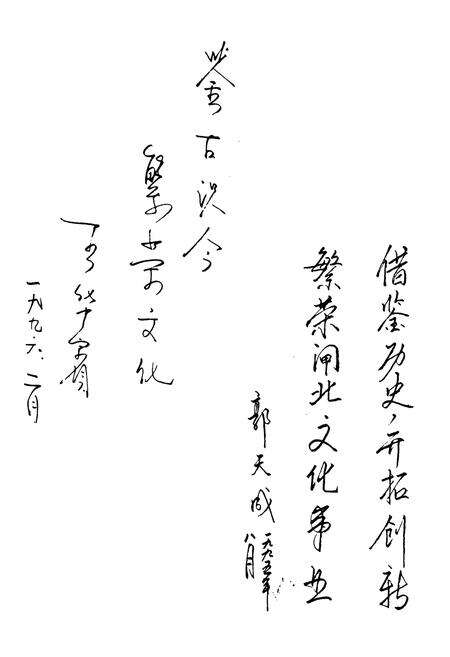 借鉴历史,开拓创新
繁荣闸北文化事业
郭天成
一九九五年
八月
鉴古识今
繁荣文化
一九九六.二月